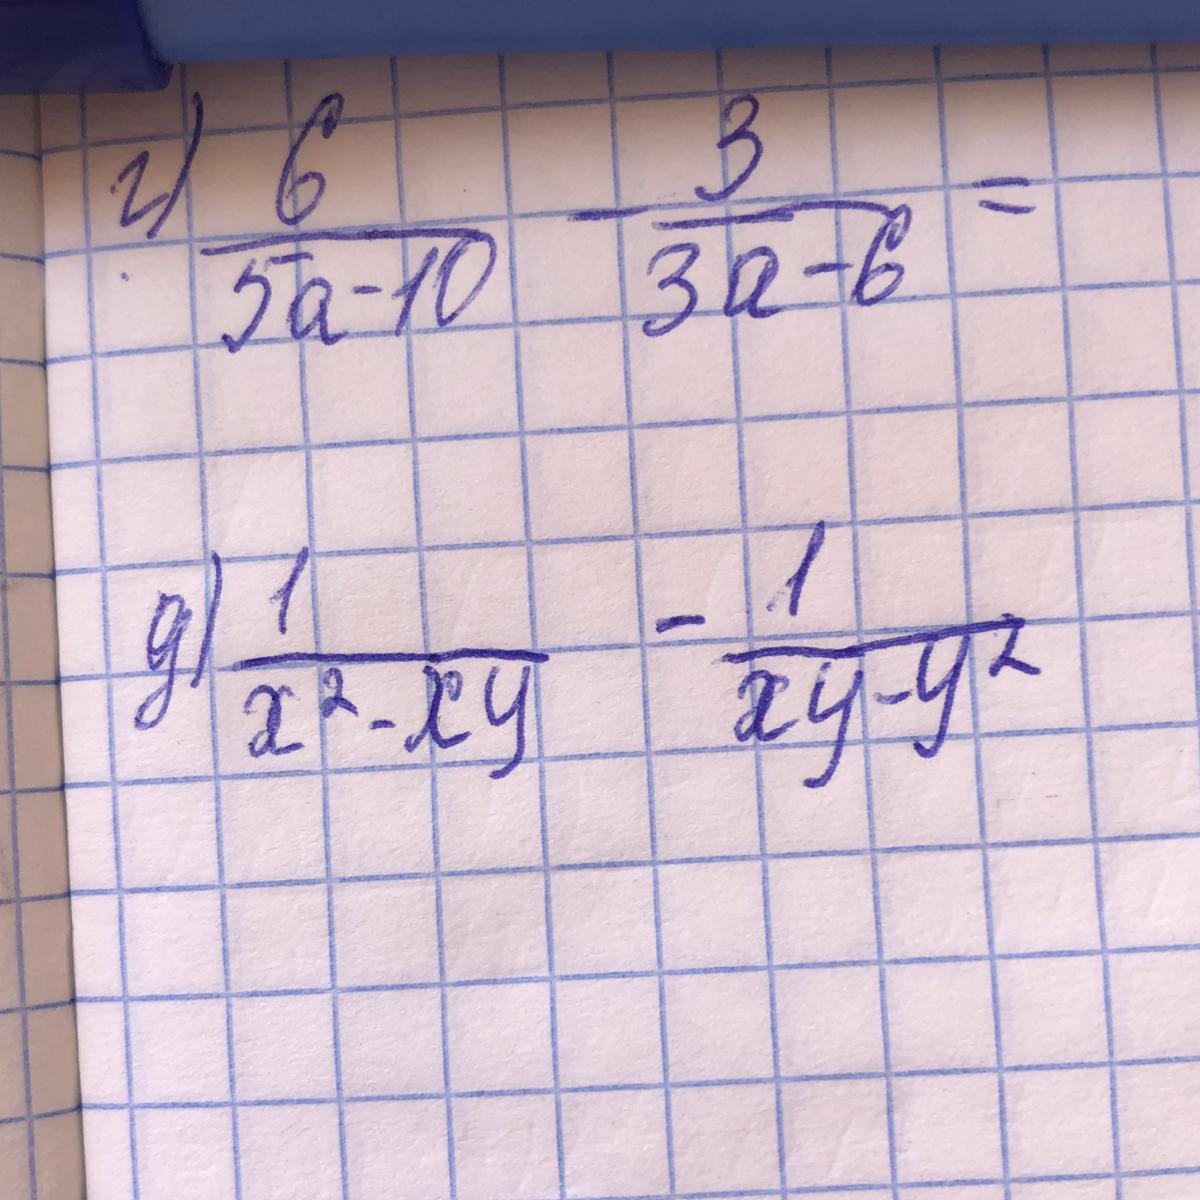 г) 6/(5a-10) - 3/(3a-6) =
д) 1/(x²-xy) - 1/(xy-y²)